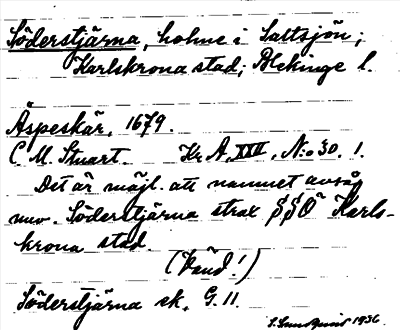 Söderstjärna, holme i Saltsjön;
Karlskrona stad; Blekinge l.
Äspeskär, 1679.
C M. Stuart. Kr. A, XXII, N:o 30. 1.
Det är möjl. att namnet avsåg
nuv. Söderstjärna strax SSO Karls-
krona stad.
(Vänd!)
Söderstjärna sk. G. 11
S. Sundquist 1936